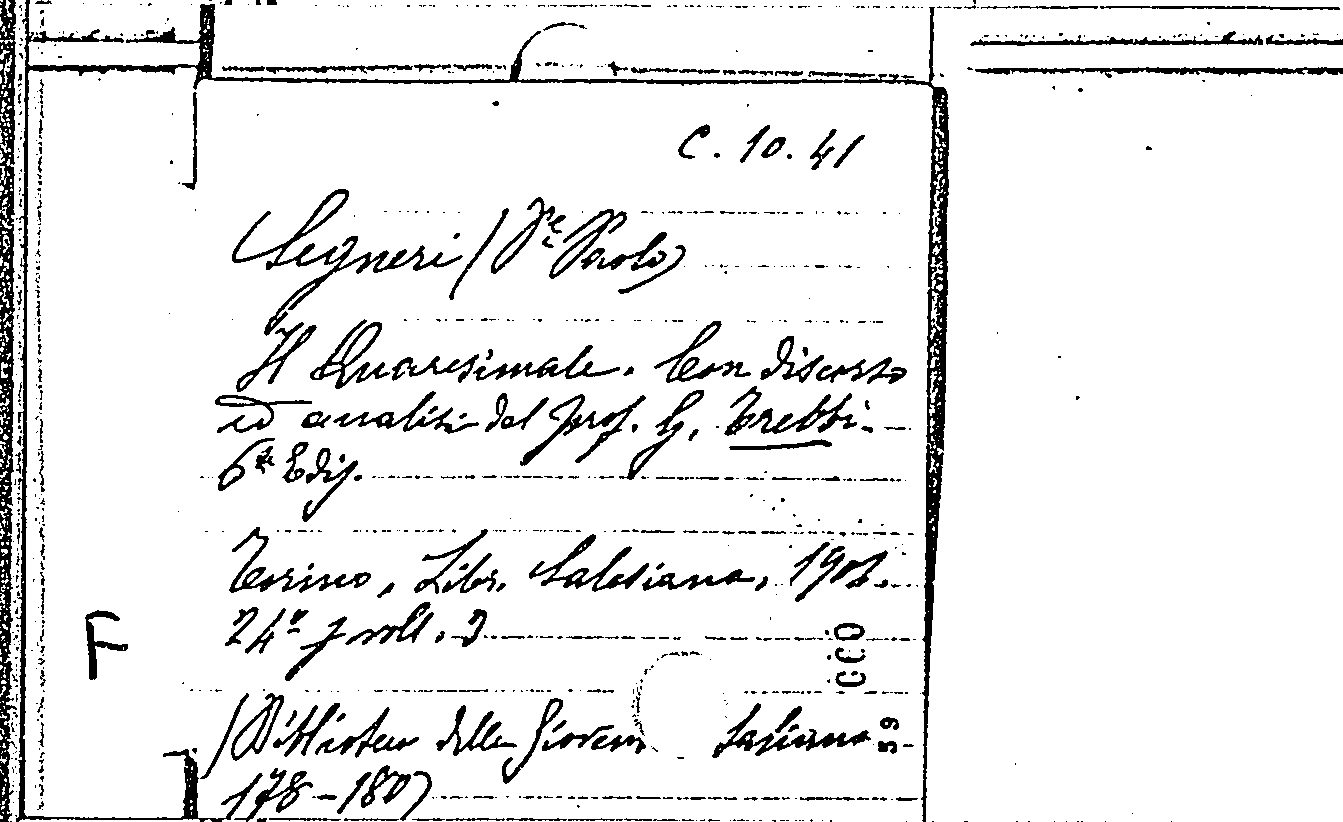 C. 10. 41
Segneri (Pe Paolo)
Il Quaresimale. Con discorso
ed analisi del prof. G. Trebbi.
6a Ediz.
Torino, Libr. Salesiana, 190
24° voll. 3
(Biblioteca della Gioven Italiana
178-180)
F
000
59